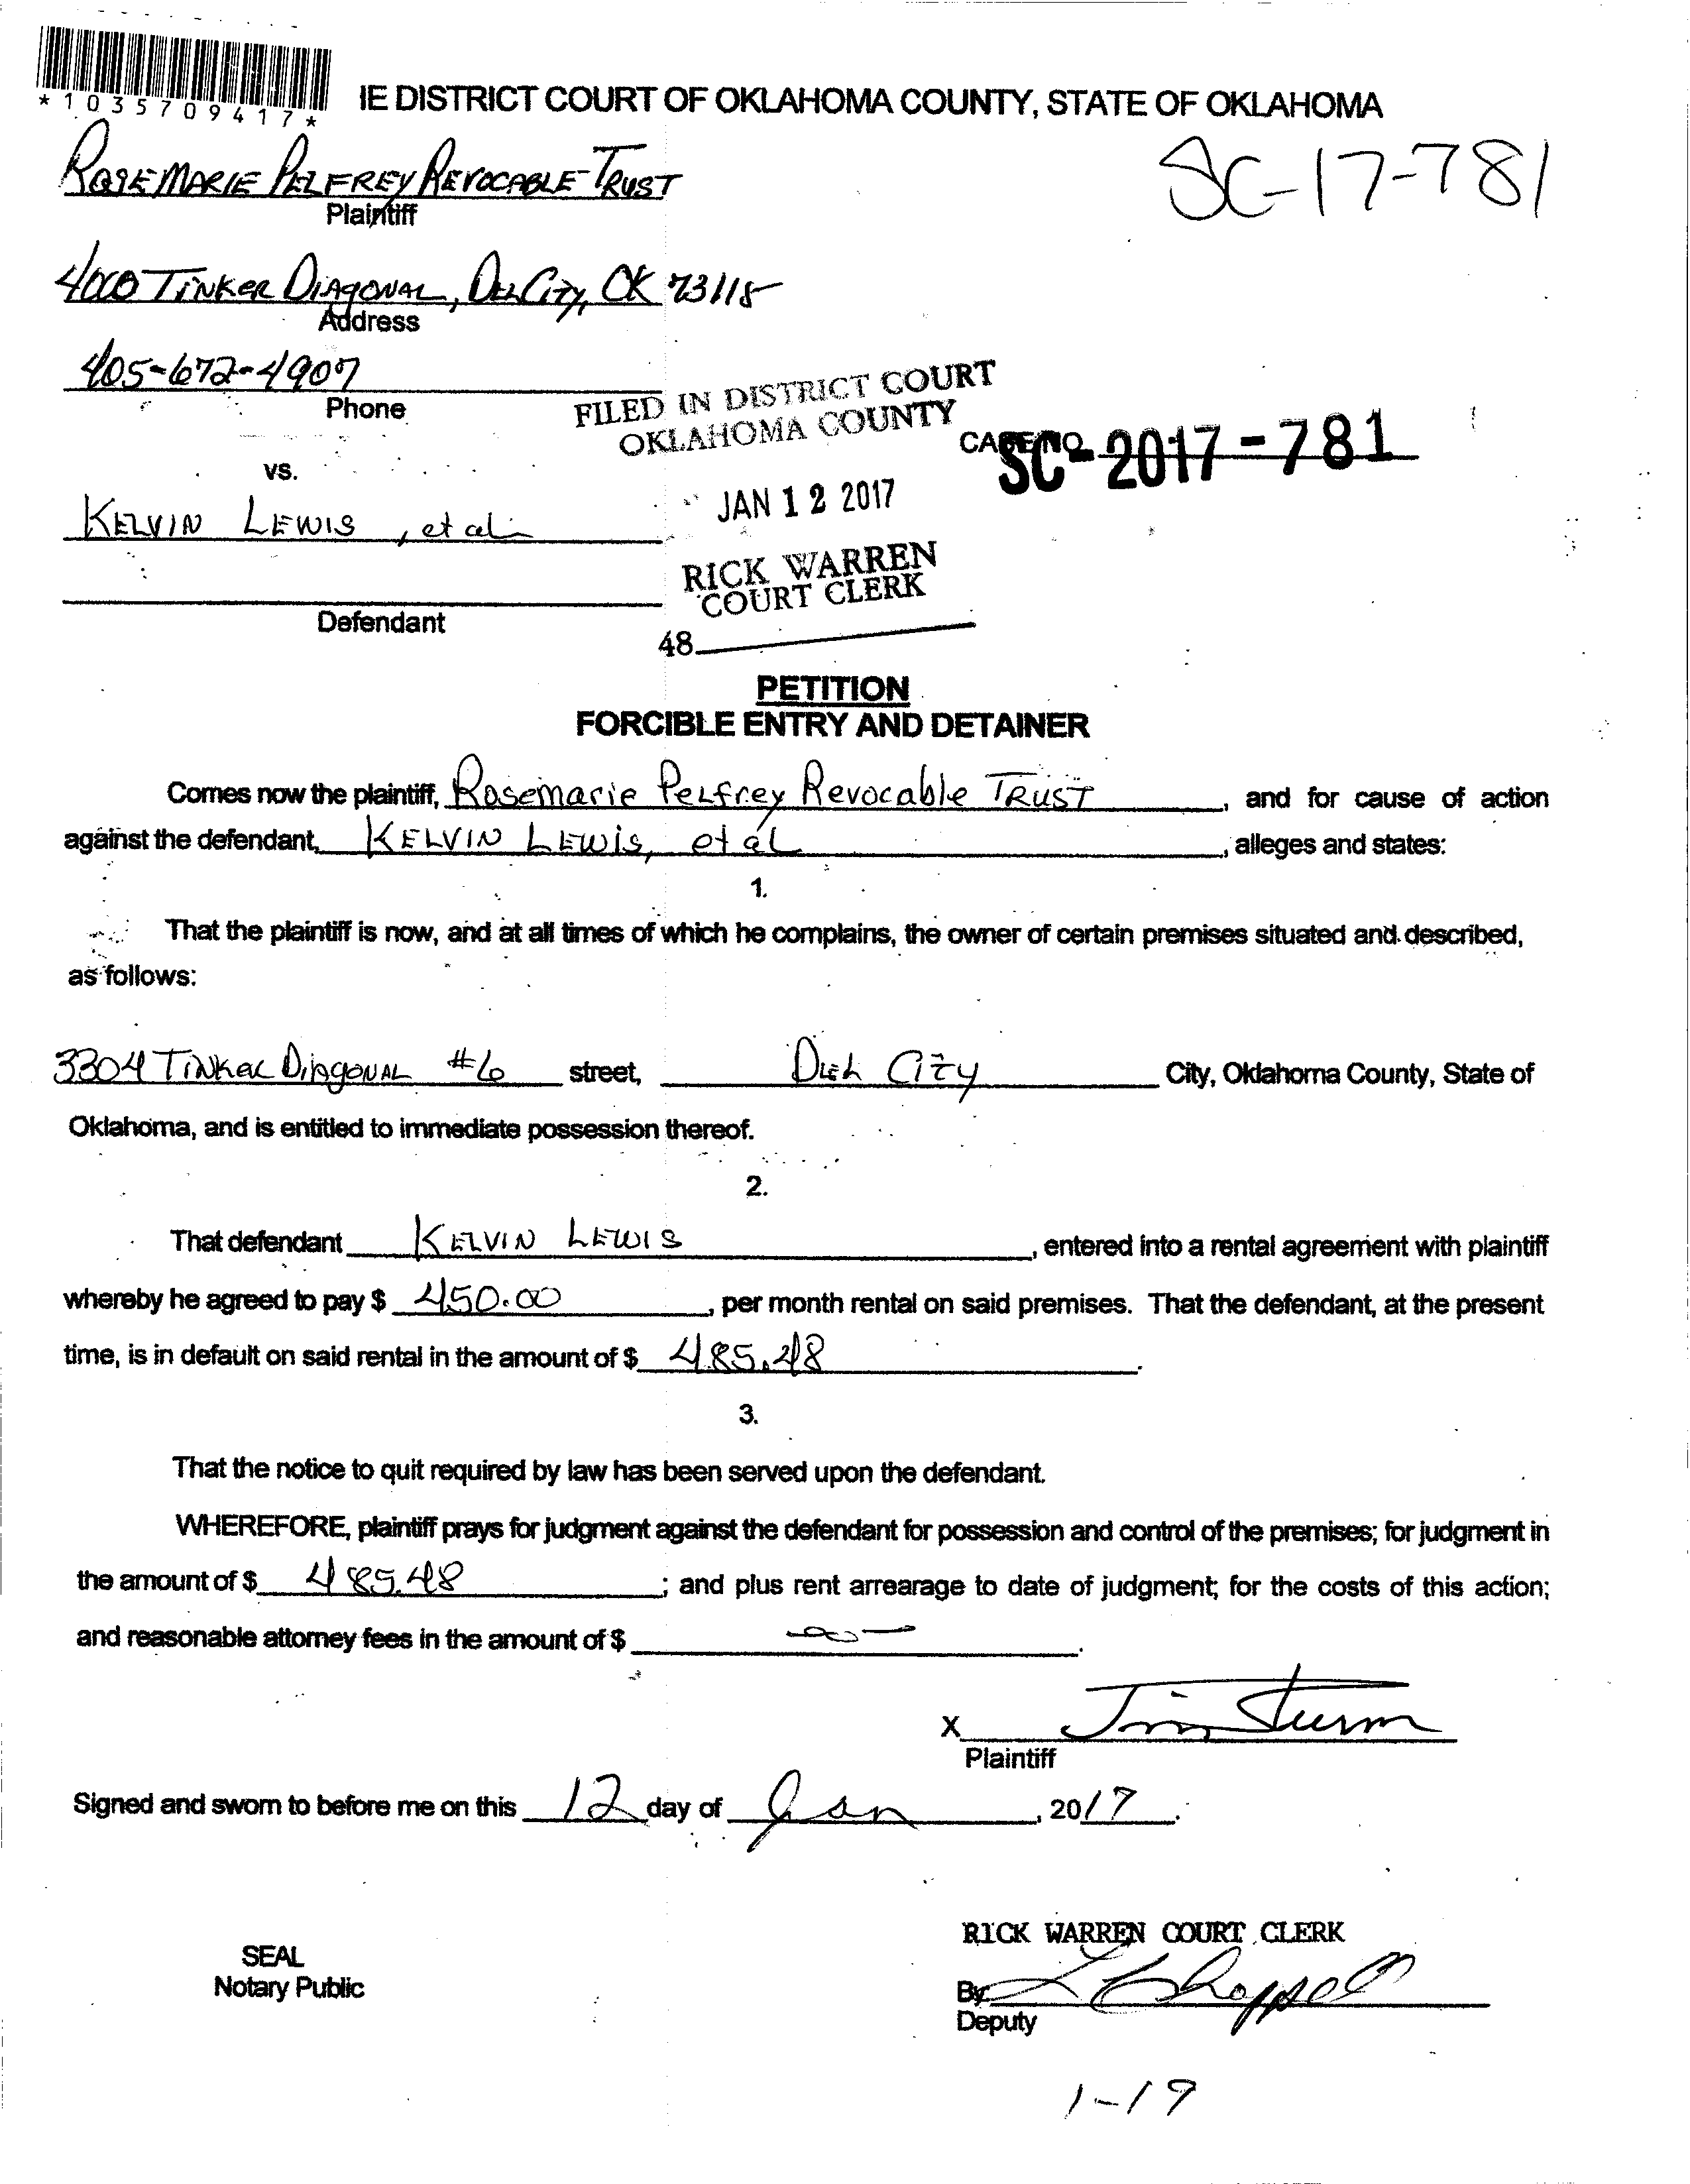 *1035709417*
IE DISTRICT COURT OF OKLAHOMA COUNTY, STATE OF OKLAHOMA
ROSEMARIE PELFREY REVOCABLE TRUST
SC-17-781
Plaintiff
4000 TINKER DIAGONAL, DEL CITY, OK 73115
Address
405-672-4907
Phone
FILED IN DISTRICT COURT
OKLAHOMA COUNTY
CASE NO.
SC-2017-781
vs.
JAN 12 2017
KELVIN LEWIS, et al
RICK WARREN
COURT CLERK
Defendant
48
PETITION
FORCIBLE ENTRY AND DETAINER
Comes now the plaintiff, Rosemarie Pelfrey Revocable TRUST, and for cause of action
against the defendant, KELVIN LEWIS, et al, alleges and states:
1.
That the plaintiff is now, and at all times of which he complains, the owner of certain premises situated and described,
as follows:
3304 TINKER DIAGONAL #6 street, DEL CITY City, Oklahoma County, State of
Oklahoma, and is entitled to immediate possession thereof.
2.
That defendant KELVIN LEWIS, entered into a rental agreement with plaintiff
whereby he agreed to pay $ 450.00, per month rental on said premises. That the defendant, at the present
time, is in default on said rental in the amount of $ 485.48.
3.
That the notice to quit required by law has been served upon the defendant.
WHEREFORE, plaintiff prays for judgment against the defendant for possession and control of the premises; for judgment in
the amount of $ 485.48; and plus rent arrearage to date of judgment; for the costs of this action;
and reasonable attorney fees in the amount of $ -00-.
X Jim Sturm
Plaintiff
Signed and sworn to before me on this 12 day of Jan, 2017.
RICK WARREN COURT CLERK
SEAL
Notary Public
By L Chappell
Deputy
1-19